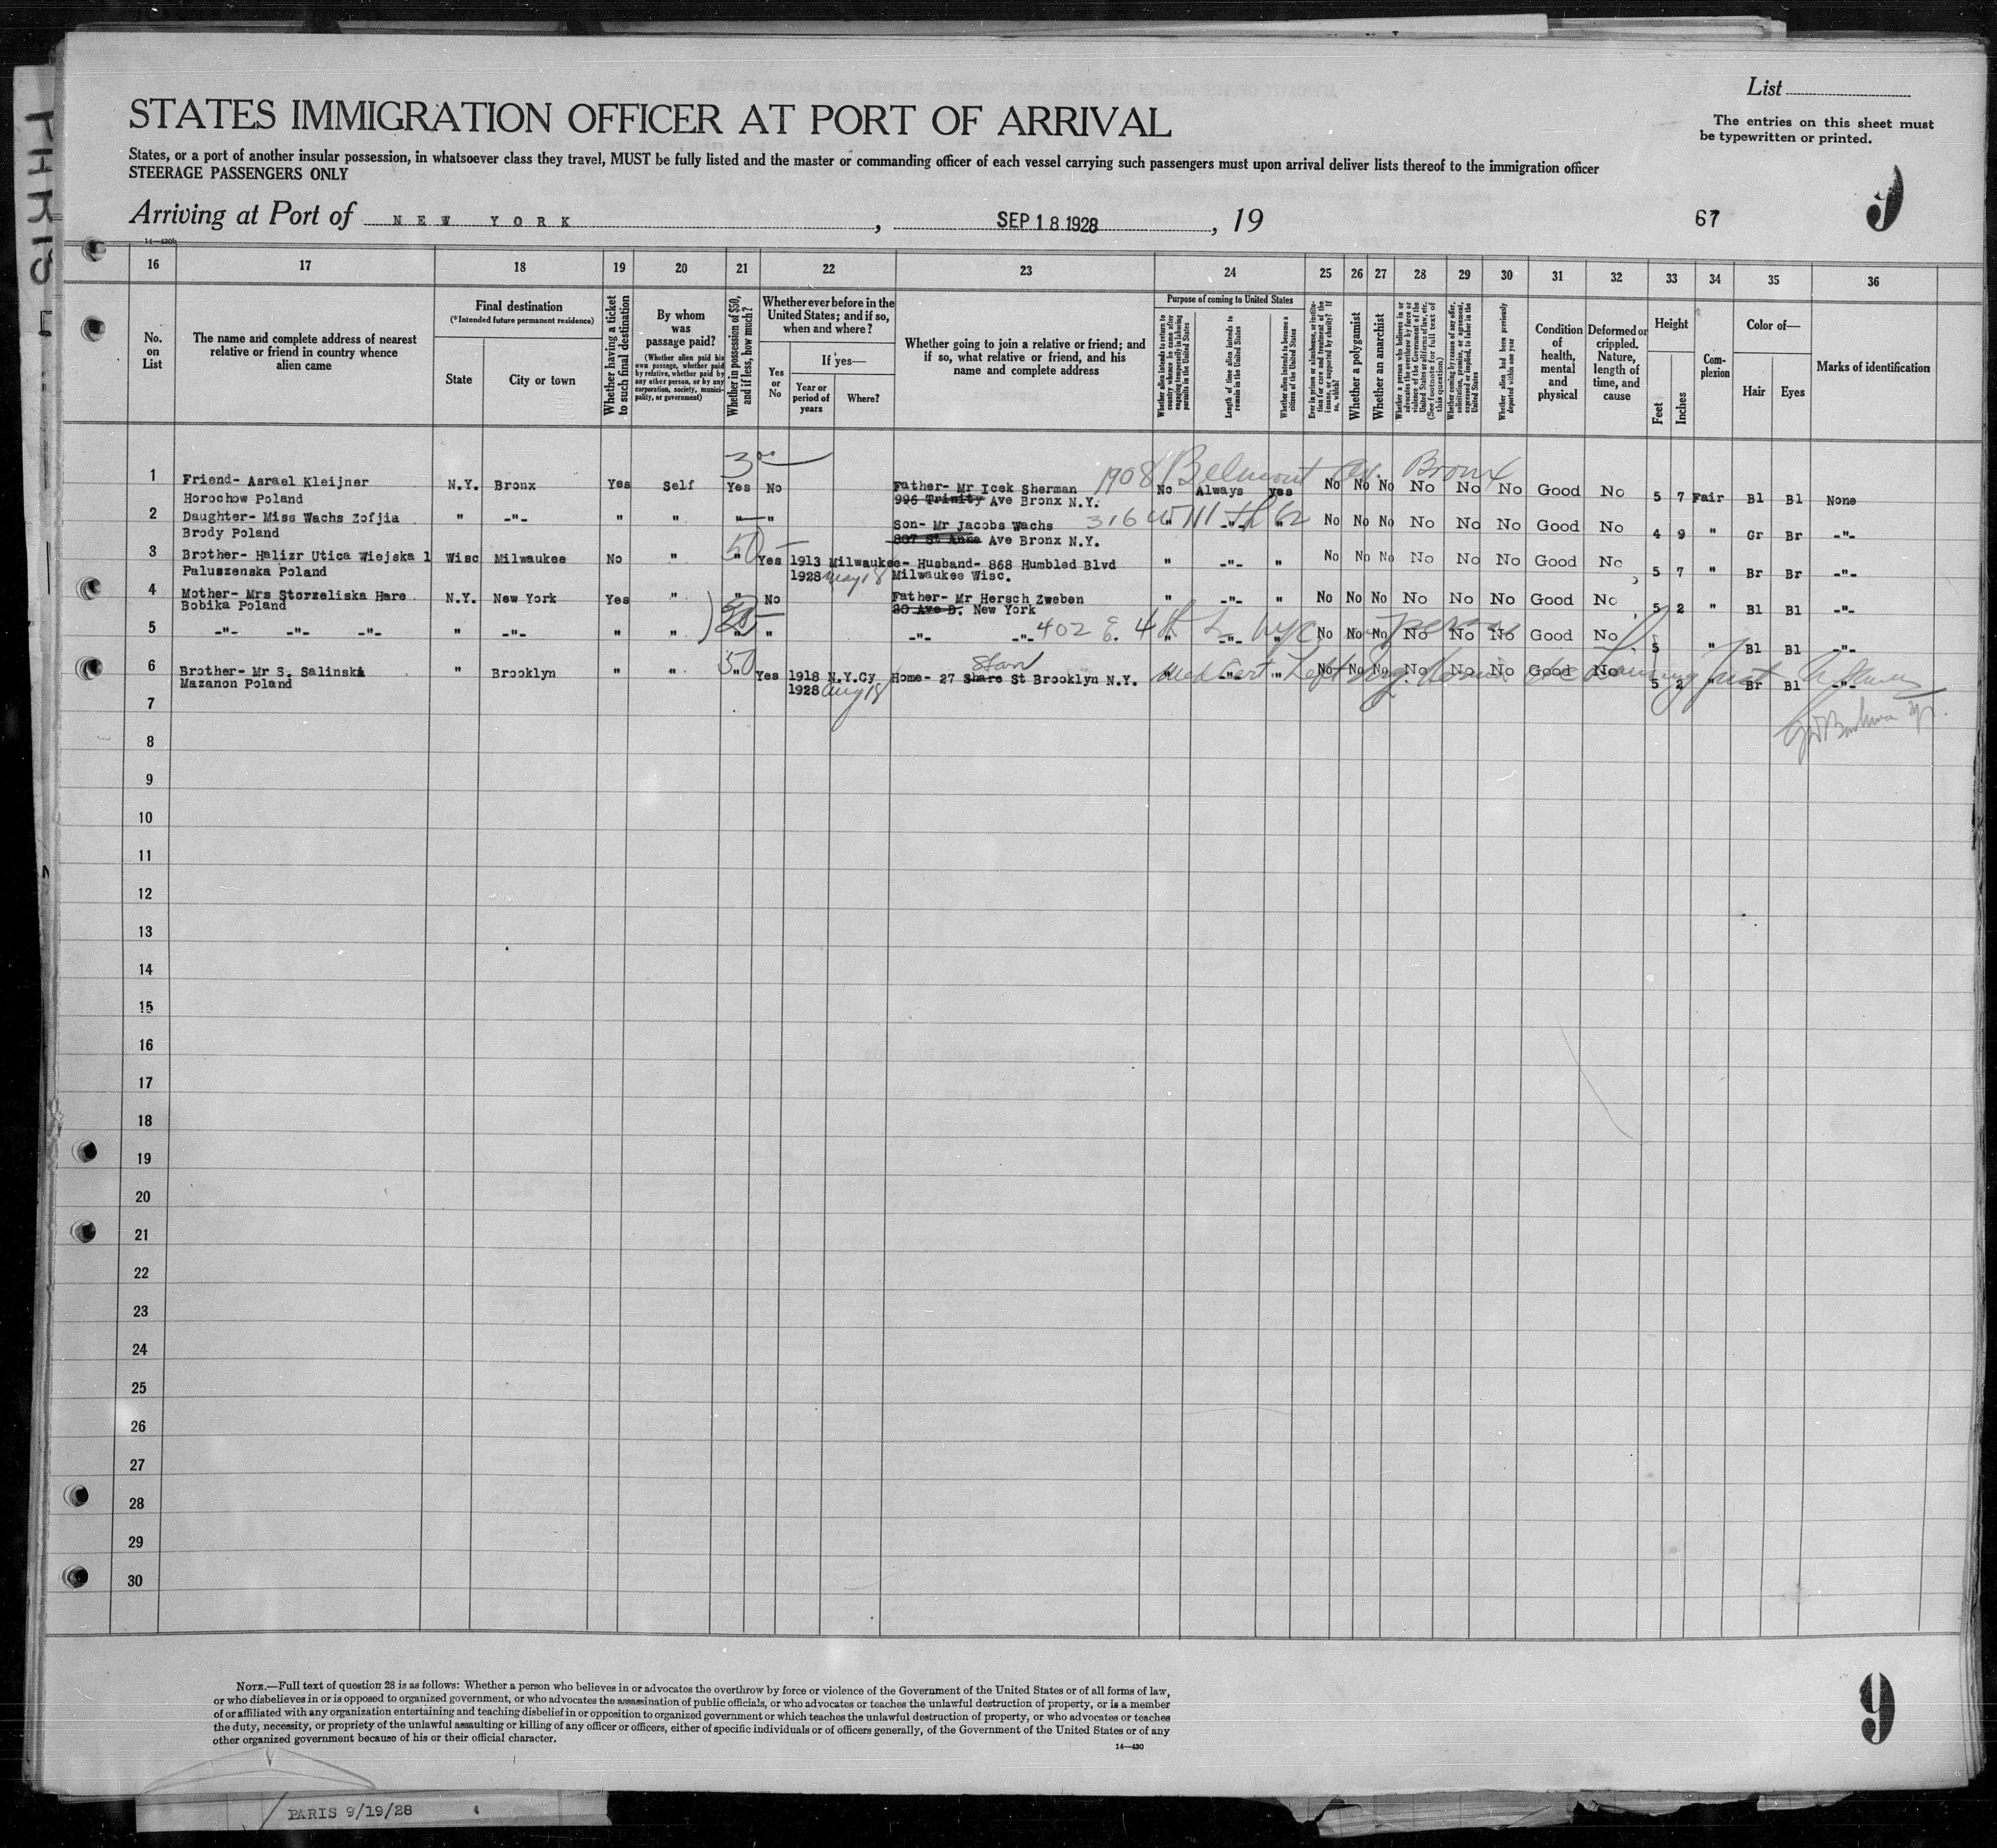 List
STATES IMMIGRATION OFFICER AT PORT OF ARRIVAL
The entries on this sheet must
be typewritten or printed.
States, or a port of another insular possession, in whatsoever class they travel, MUST be fully listed and the master or commanding officer of each vessel carrying such passengers must upon arrival deliver lists thereof to the immigration officer
STEERAGE PASSENGERS ONLY
Arriving at Port of NEW YORK, SEP 18 1928, 19
67
9
14—430b
16 17 18 19 20 21 22 23 24 25 26 27 28 29 30 31 32 33 34 35 36
No. on List
The name and complete address of nearest relative or friend in country whence alien came
Final destination
(*Intended future permanent residence)
State
City or town
Whether having a ticket to such final destination
By whom was passage paid?
(Whether alien paid his own passage, whether paid by relative, whether paid by any other person, or by any corporation, society, municipality, or government)
Whether in possession of $50, and if less, how much?
Whether ever before in the United States; and if so, when and where?
Yes or No
If yes—
Year or period of years
Where?
Whether going to join a relative or friend; and if so, what relative or friend, and his name and complete address
Purpose of coming to United States
Whether alien intends to return to country whence he came after engaging temporarily in laboring pursuits in the United States
Length of time alien intends to remain in the United States
Whether alien intends to become a citizen of the United States
Ever in prison or almshouse, or institution for care and treatment of the insane, or supported by charity? If so, which?
Whether a polygamist
Whether an anarchist
Whether a person who believes in or advocates the overthrow by force or violence of the Government of the United States or all forms of law, etc. (See footnote for full text of this question)
Whether coming by reason of any offer, solicitation, promise, or agreement, expressed or implied, to labor in the United States
Whether alien had been previously deported within one year
Condition of health, mental and physical
Deformed or crippled. Nature, length of time, and cause
Height
Feet
Inches
Complexion
Color of—
Hair
Eyes
Marks of identification
3 00
1908 Belmont Av. Bronx
1 Friend- Asrael Kleijner N.Y. Bronx Yes Self Yes No Father- Mr Icek Sherman No Always yes No No No No No No Good No 5 7 Fair Bl Bl None
Horochow Poland 996 Trinity Ave Bronx N.Y.
2 Daughter- Miss Wachs Zofjia " -"- " " " " Son- Mr Jacobs Wachs 316 W 111th " -"- " No No No No No No Good No 4 9 " Gr Br -"-
Brody Poland 807 St Anns Ave Bronx N.Y.
3 Brother- Halizr Utica Wiejska 1 Wisc Milwaukee No " 50 " Yes 1913 Milwaukee- Husband- 868 Humbled Blvd " -"- " No No No No No No Good No 5 7 " Br Br -"-
Paluszenska Poland 1928 May 18 Milwaukee Wisc.
4 Mother- Mrs Storzeliska Hare N.Y. New York Yes " " No Father- Mr Hersch Zweben " -"- " No No No No No No Good No 5 2 " Bl Bl -"-
Bobika Poland 30 Ave D. New York
5 -"- -"- -"- " -"- " " " " -"- -"- 402 E. 4th " -"- " No No No No No No Good No 5 " Bl Bl -"-
6 Brother- Mr S. Salinski " Brooklyn " " 50 " Yes 1918 N.Y.Cy Home- 27 Share St Brooklyn N.Y. Med Cert Left " -"- " No No No No No No Good No 5 2 " Br Bl -"-
Mazanon Poland 1928 Aug 18
7
8
9
10
11
12
13
14
15
16
17
18
19
20
21
22
23
24
25
26
27
28
29
30
NOTE.—Full text of question 28 is as follows: Whether a person who believes in or advocates the overthrow by force or violence of the Government of the United States or of all forms of law,
or who disbelieves in or is opposed to organized government, or who advocates the assassination of public officials, or who advocates or teaches the unlawful destruction of property, or is a member
of or affiliated with any organization entertaining and teaching disbelief in or opposition to organized government or which teaches the unlawful destruction of property, or who advocates or teaches
the duty, necessity, or propriety of the unlawful assaulting or killing of any officer or officers, either of specific individuals or of officers generally, of the Government of the United States or of any
other organized government because of his or their official character.
14—430
9
PARIS 9/19/28